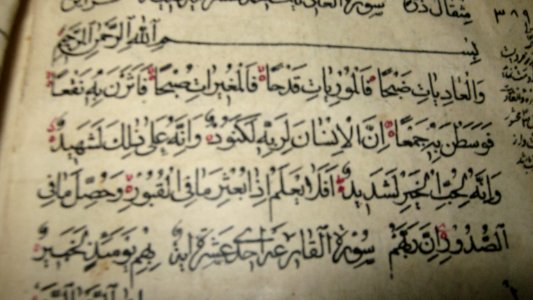 مِثْقَالَ ذَرَّةٍ سُورَةُ الْعَادِيَاتِ
بِسْمِ اللهِ الرَّحْمٰنِ الرَّحِيمِ
وَالْعَادِيَاتِ ضَبْحًا فَالْمُورِيَاتِ قَدْحًا فَالْمُغِيرَاتِ صُبْحًا فَاَثَرْنَ بِهِ نَقْعًا
فَوَسَطْنَ بِهِ جَمْعًا اِنَّ الْاِنْسَانَ لِرَبِّهِ لَكَنُودٌ وَاِنَّهُ عَلَى ذٰلِكَ لَشَهِيدٌ
وَاِنَّهُ لِحُبِّ الْخَيْرِ لَشَدِيدٌ اَفَلَا يَعْلَمُ اِذَا بُعْثِرَ مَا فِي الْقُبُورِ وَحُصِّلَ مَا فِي
الصُّدُورِ اِنَّ رَبَّهُمْ سُورَةُ الْقَارِعَةِ اِحْدَى عَشْرَةَ اٰيَةً بِهِمْ يَوْمَئِذٍ لَخَبِيرٌ